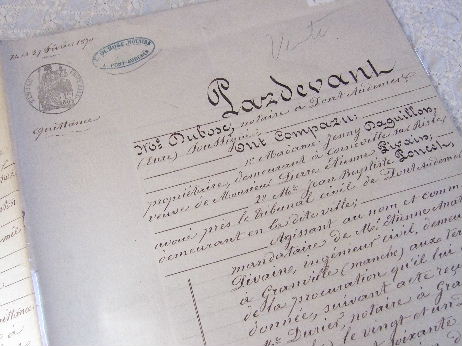 24 et 27 Février 1870
A PONT-AUDEMER
Vente
quittance
Pardevant
Me Dubosc, notaire à Pont-Audemer
(Eure) Soussigné;
Ont Comparu:
1° Madame Jenny Daguillon,
propriétaire, demeurant à Corneville sur Risle,
veuve de Monsieur Pierre Etienne Pivain,
2° Me Jean Baptiste Poncet
avoué près le tribunal civil de Pont-Audemer
demeurant en la dite ville;
Agissant au nom et comme
mandataire de Mr Etienne
Pivain, ingénieur civil, demeurant
à Granville (manche) aux termes
de la procuration qu'il lui a
donnée, suivant acte reçu
Me Durier, notaire à
le vingt et un
soixante